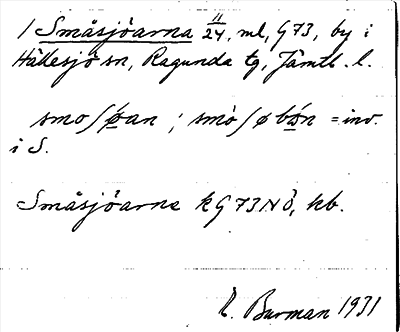 1 Småsjöarna 11/24, ml, G73, by i
Hällesjö sn, Ragunda tg, Jämtl. l.
smoʃǿan ; smòʃøbo̲n = inv.
i S.
Småsjöarna kG73NÖ, hb.
E. Burman 1931